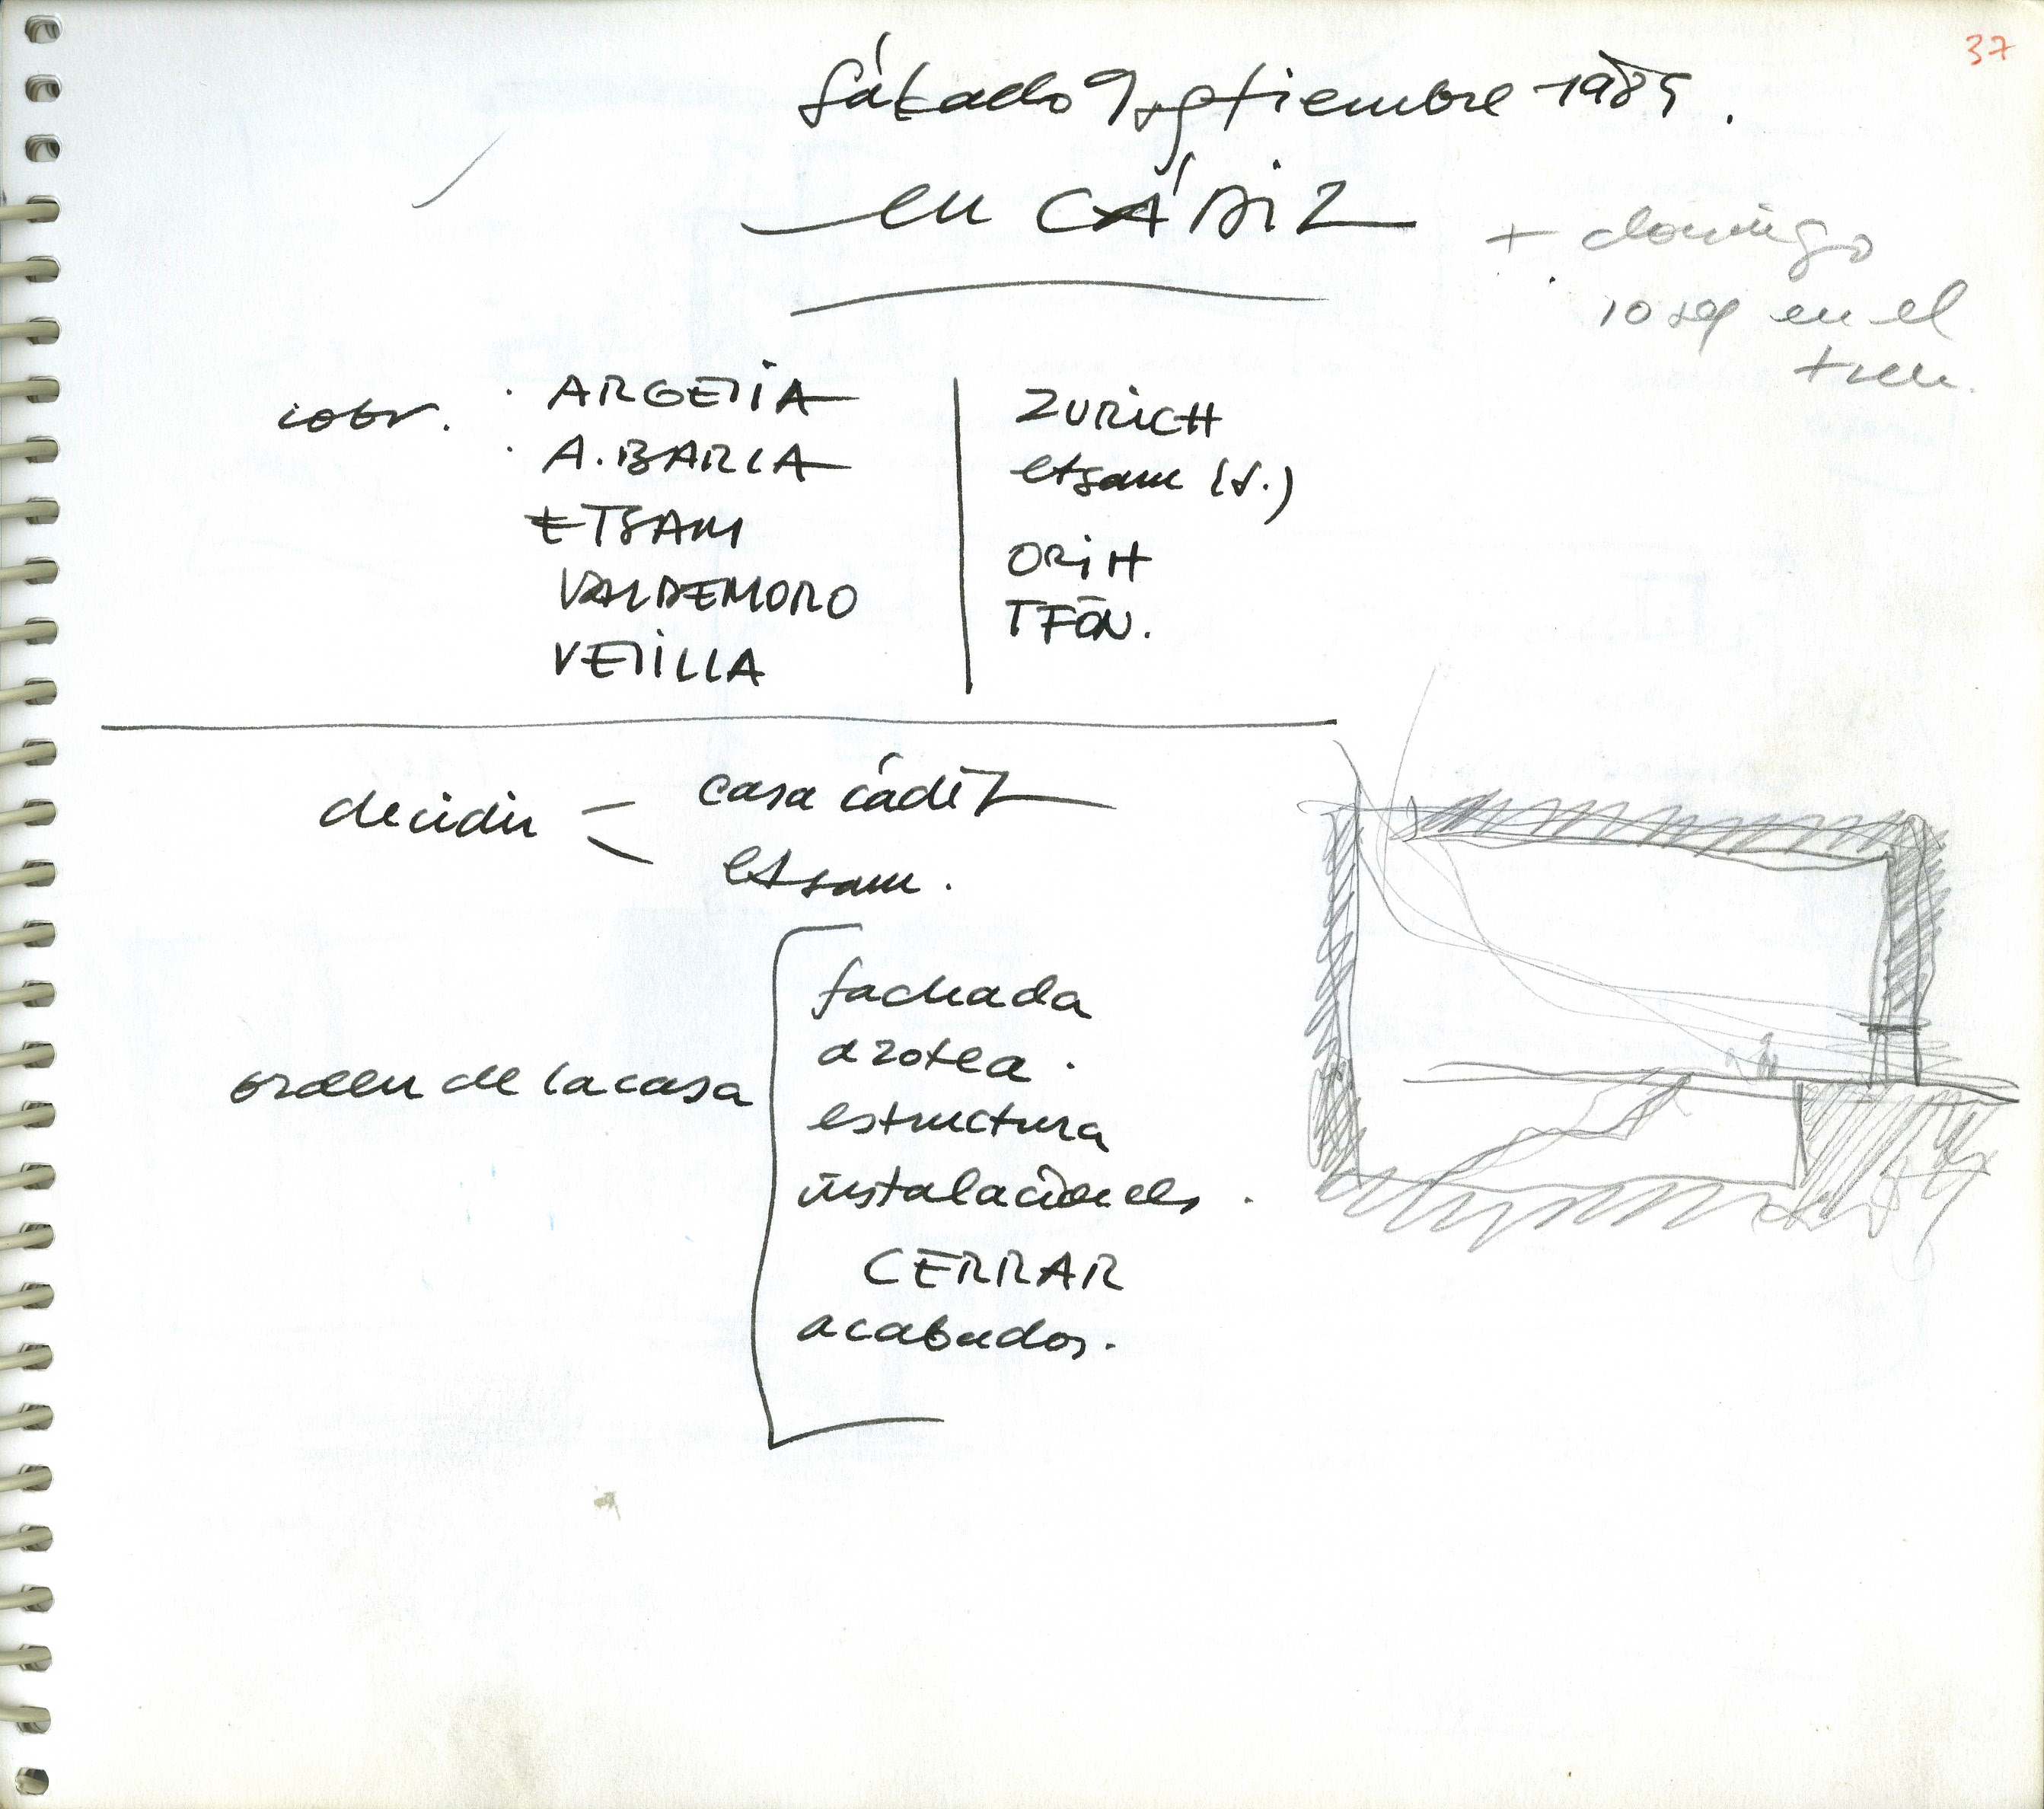 37
sábado 9 septiembre 1989.
en CÁDIZ
+ domingo
10 sep en el
tren.
cobr.
· ARGELIA
· A. BARLA
ETSAM
VALDEMORO
VELILLA
ZURICH
etsam (s.)
ORIH
TFÓN.
decidir
casa cádiz
etsam.
orden de la casa
fachada
azotea.
estructura
instalaciones.
CERRAR
acabados.